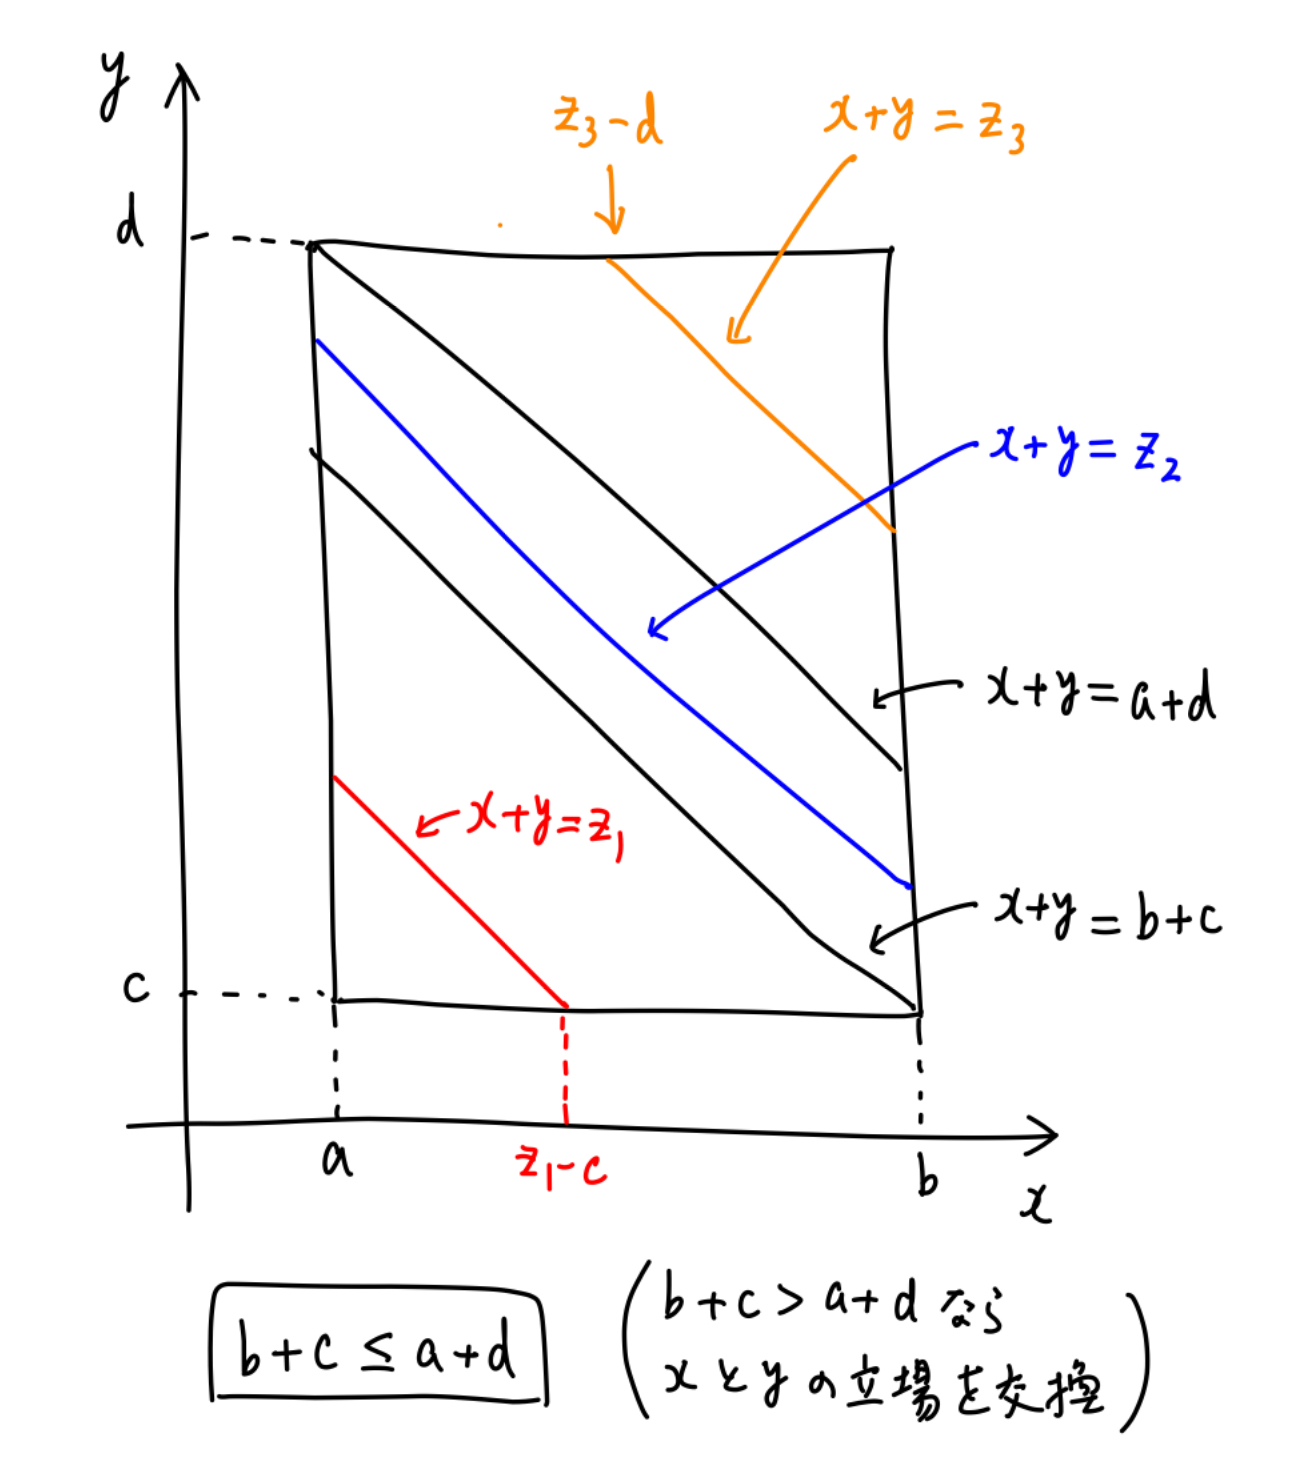 y
z₃-d
x+y=z₃
d
x+y=z₂
x+y=a+d
x+y=z₁
x+y=b+c
c
a
z₁-c
b
x
b+c≤a+d
(b+c>a+dなら
xとyの立場を交換)